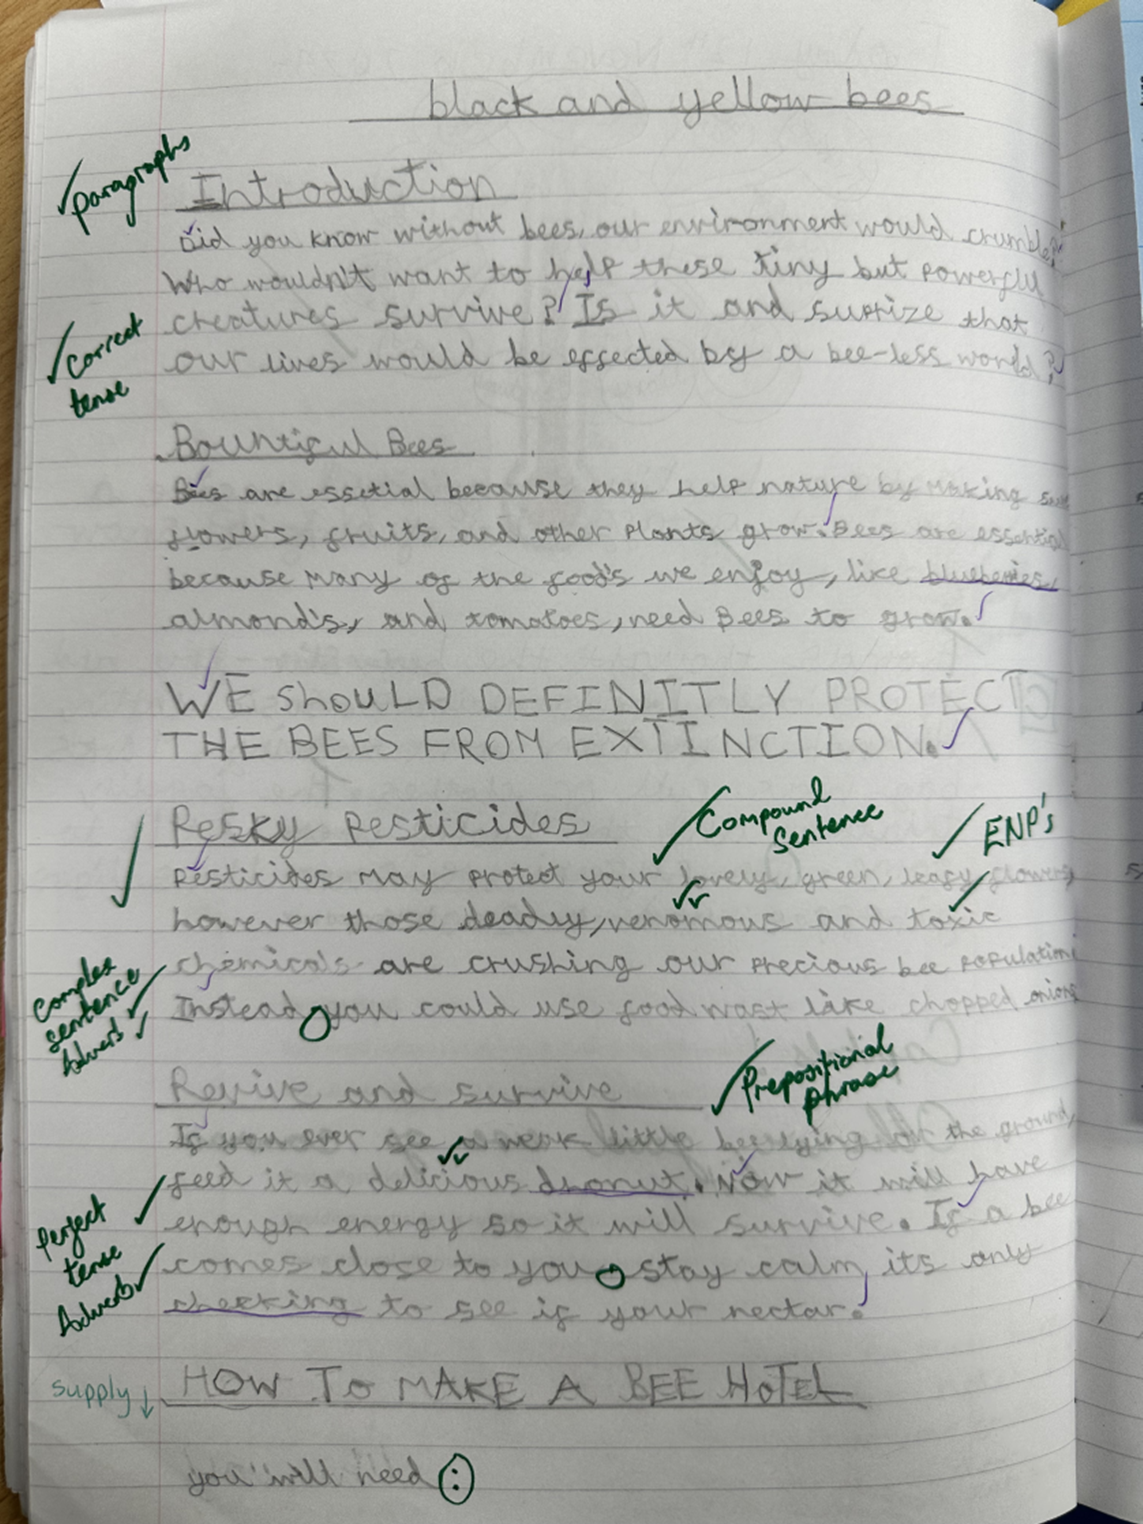 black and yellow bees
✓ paragraphs
Introduction
Did you know without bees, our environment would crumble?
Who wouldn't want to help these tiny but powerful
creatures survive? Is it and surprize that
✓ Correct tense
our lives would be effected by a bee-less world?
Bountiful Bees
Bees are essetial because they help nature by making
flowers, fruits, and other plants grow. Bees are essential
because many of the food's we enjoy, like blueberries,
almond's, and tomatoes, need Bees to grow.
WE ShoULD DEFINITLY PROTECT
THE BEES FROM EXTIINCTION.
Pesky Pesticides
✓ Compound Sentence
✓ ENP's
Pesticides may protect your lovely, green, leafy flowers
however those deadly, venomous and toxic
chemicals are crushing our precious bee population
Complex sentence ✓
Adverb ✓
Instead you could use food wast like chopped onions
Revive and survive
✓ Prepositional phrase
If you ever see a weak little bee lying on the ground,
feed it a delicious donut. Now it will have
enough energy so it will survive. If a bee
Perfect tense ✓
Adverb ✓
comes close to you stay calm, its only
checking to see if your nectar.
supply ↓
HOW To MAKE A BEE HoTEL
you will need :